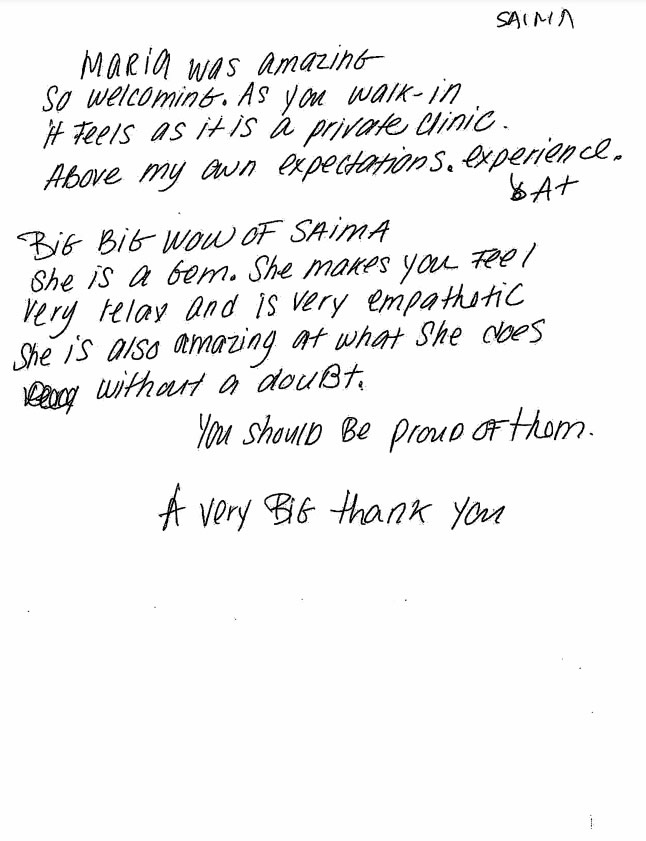 SAIMA
MARIA was amazing
So welcoming. As you walk-in
it feels as it is a private clinic.
Above my own expectations. experience.
A+
BIG BIG WOW OF SAIMA
She is a Gem. She makes you Feel
very relax and is very empathetic
She is also amazing at what She does
without a douBt.
You should Be proud of them.
A very BIG thank you